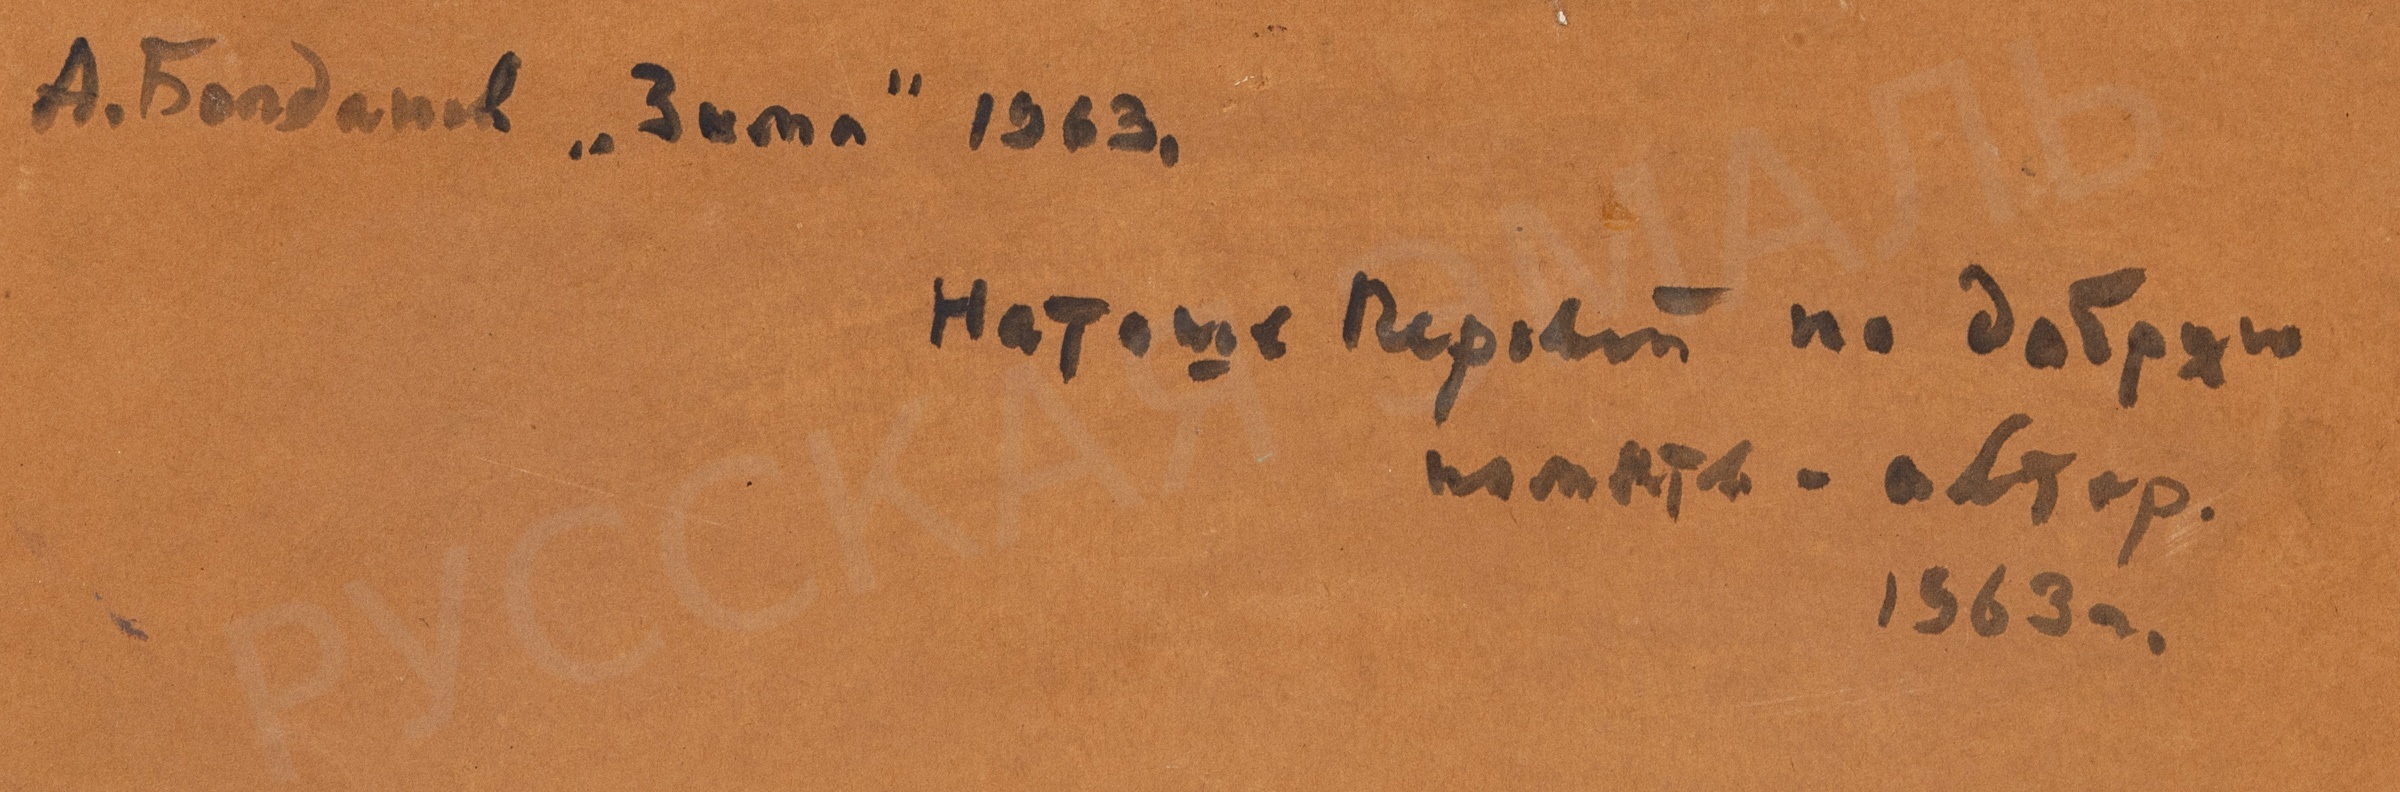 А. Богданов „Зима" 1963.
Наташе Перовой на добрую
память - автор.
1963 г.
РУССКАЯ ЭМАЛЬ